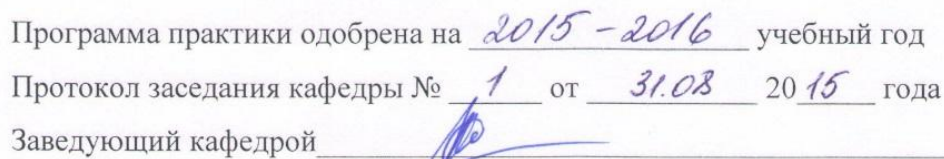 Программа практики одобрена на 2015-2016 учебный год
Протокол заседания кафедры № 1 от 31.08 2015 года
Заведующий кафедрой